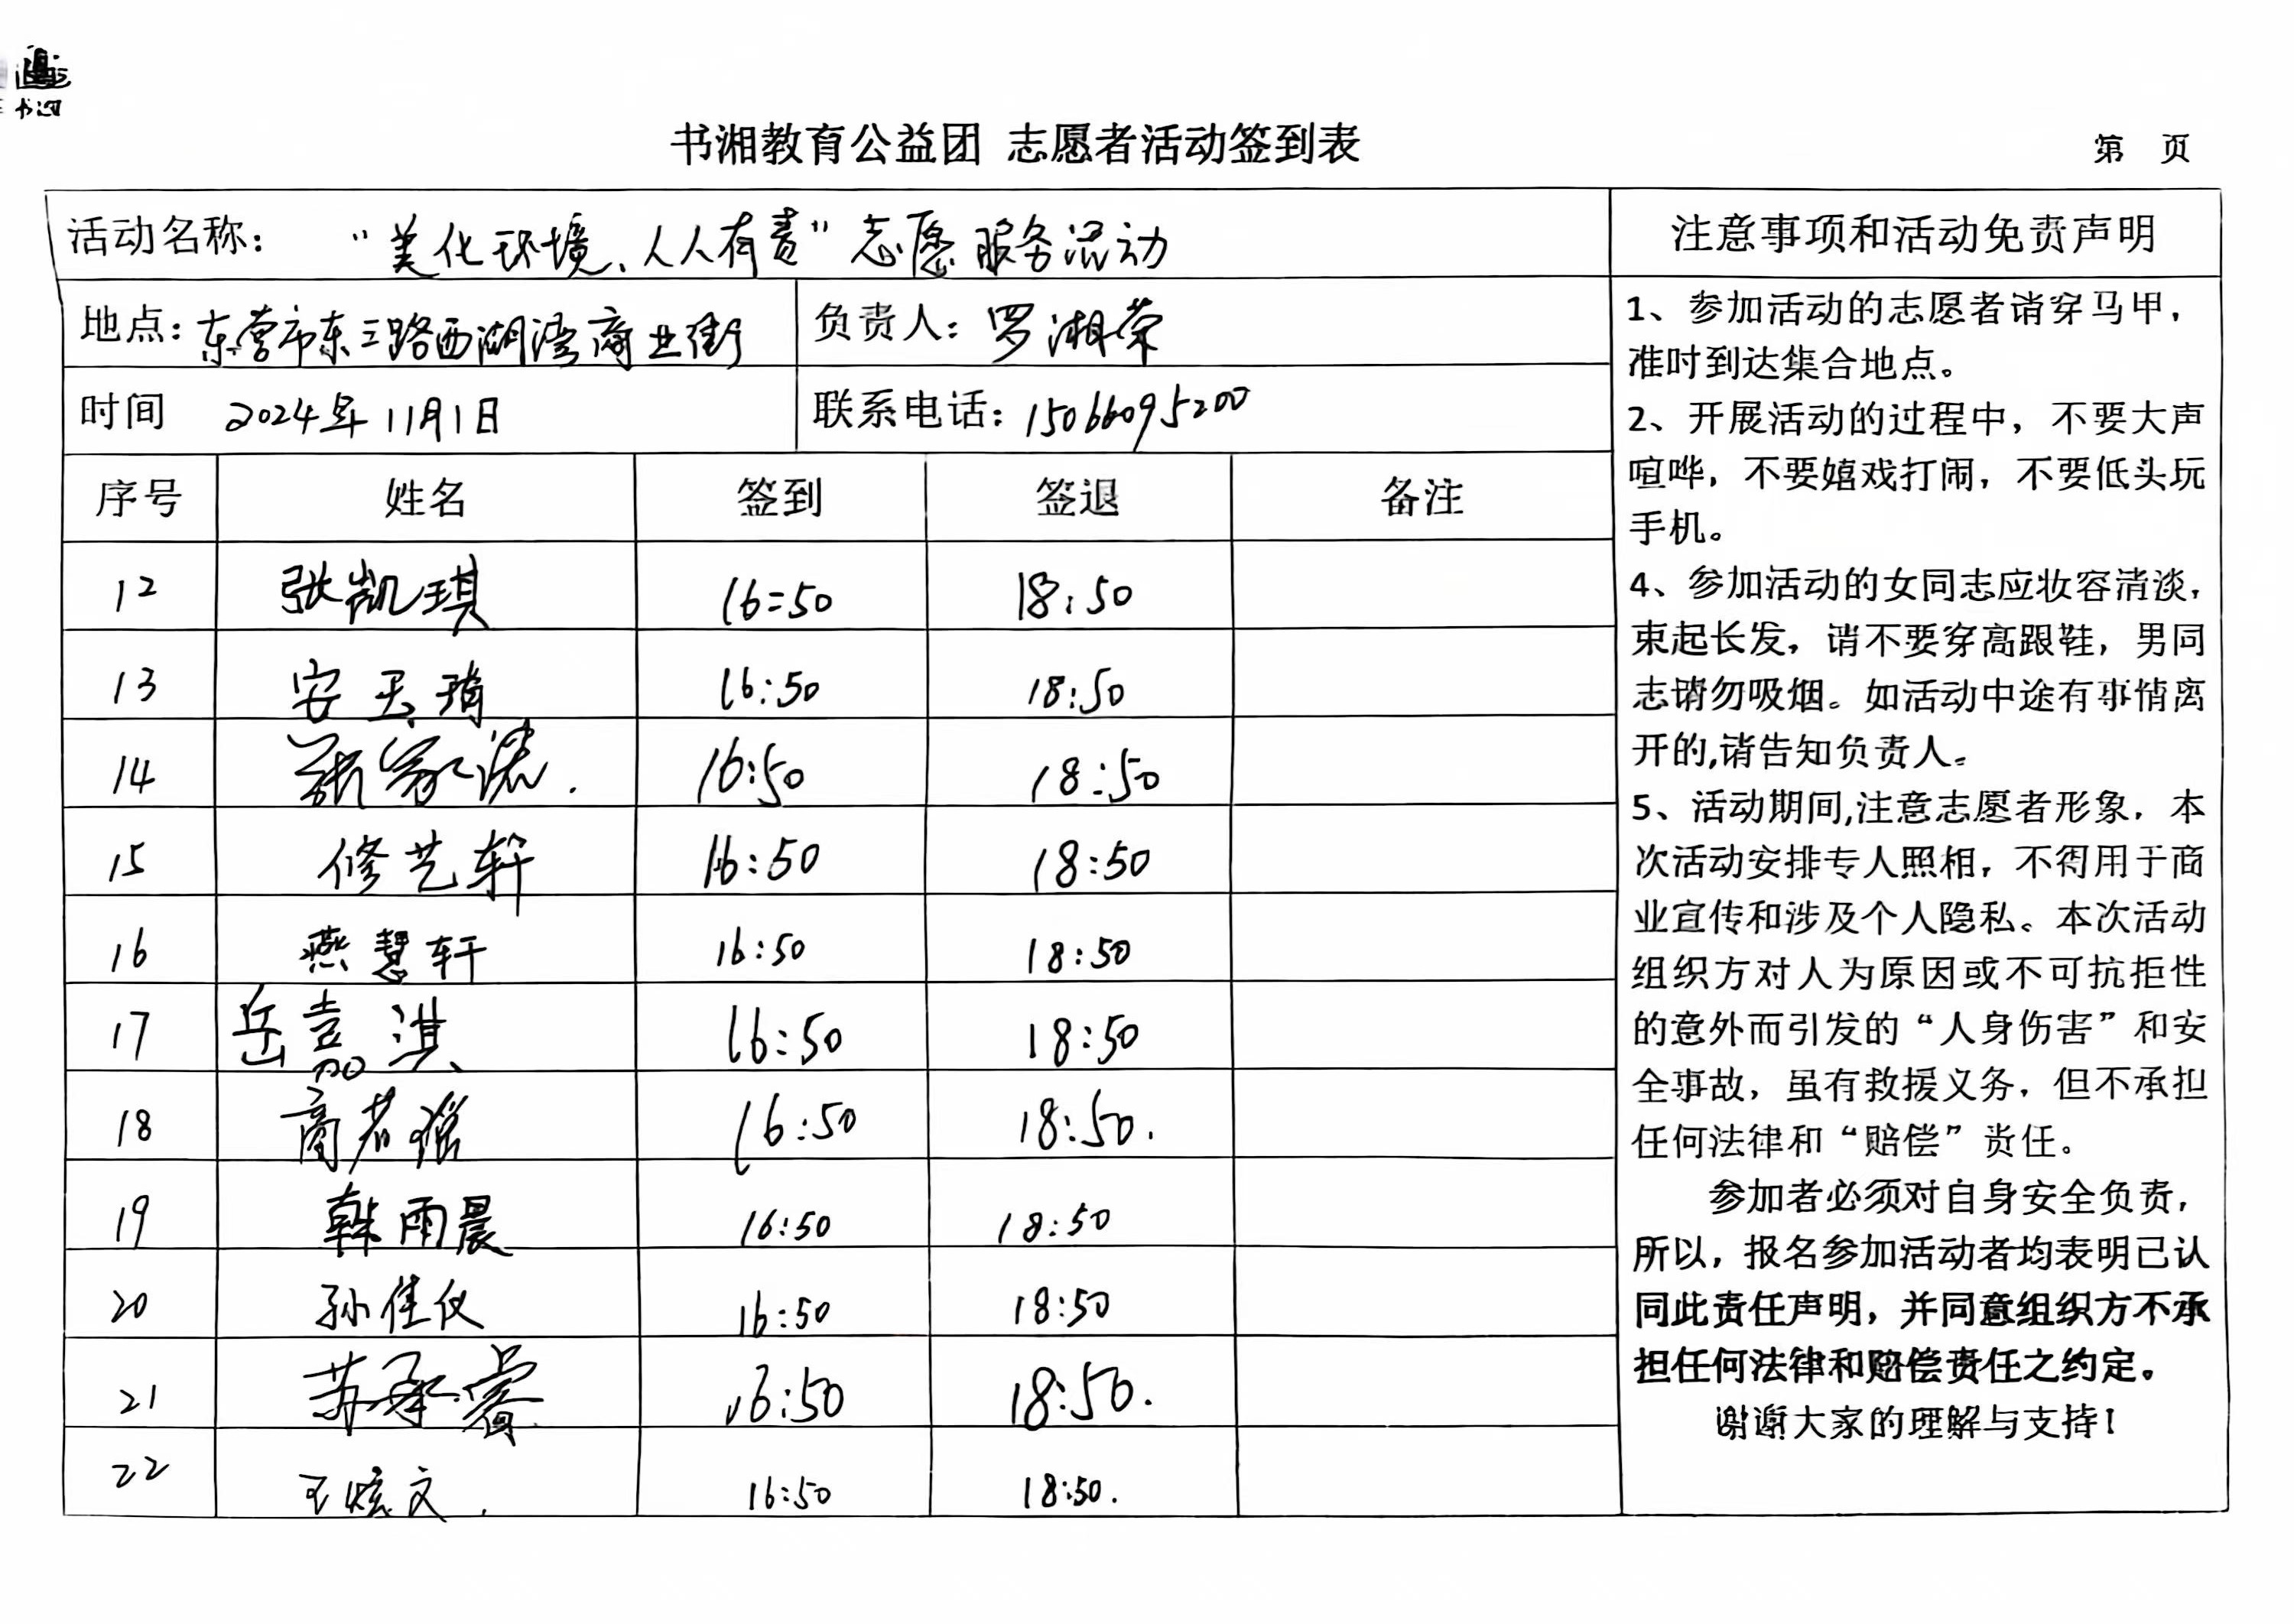 书湘教育公益团 志愿者活动签到表
第 页
活动名称： “美化环境、人人有责”志愿服务活动
地点：东营市东三路西湖湾商业街
负责人：罗湘荣
时间 2024年11月1日
联系电话：15066095200
序号 姓名 签到 签退 备注
12 张凯琪 16:50 18:50
13 安玉琦 16:50 18:50
14 16:50 18:50
15 修艺轩 16:50 18:50
16 燕慧轩 16:50 18:50
17 岳嘉淇 16:50 18:50
18 商若瑶 16:50 18:50.
19 韩雨晨 16:50 18:50
20 孙佳仪 16:50 18:50
21 苏承睿 16:50 18:50.
22 王炫文. 16:50 18:50.
注意事项和活动免责声明
1、参加活动的志愿者请穿马甲，
准时到达集合地点。
2、开展活动的过程中，不要大声
喧哗，不要嬉戏打闹，不要低头玩
手机。
4、参加活动的女同志应妆容清淡，
束起长发，请不要穿高跟鞋，男同
志请勿吸烟。如活动中途有事情离
开的,请告知负责人。
5、活动期间,注意志愿者形象，本
次活动安排专人照相，不得用于商
业宣传和涉及个人隐私。本次活动
组织方对人为原因或不可抗拒性
的意外而引发的“人身伤害”和安
全事故，虽有救援义务，但不承担
任何法律和“赔偿”责任。
参加者必须对自身安全负责，
所以，报名参加活动者均表明已认
同此责任声明，并同意组织方不承
担任何法律和赔偿责任之约定。
谢谢大家的理解与支持！